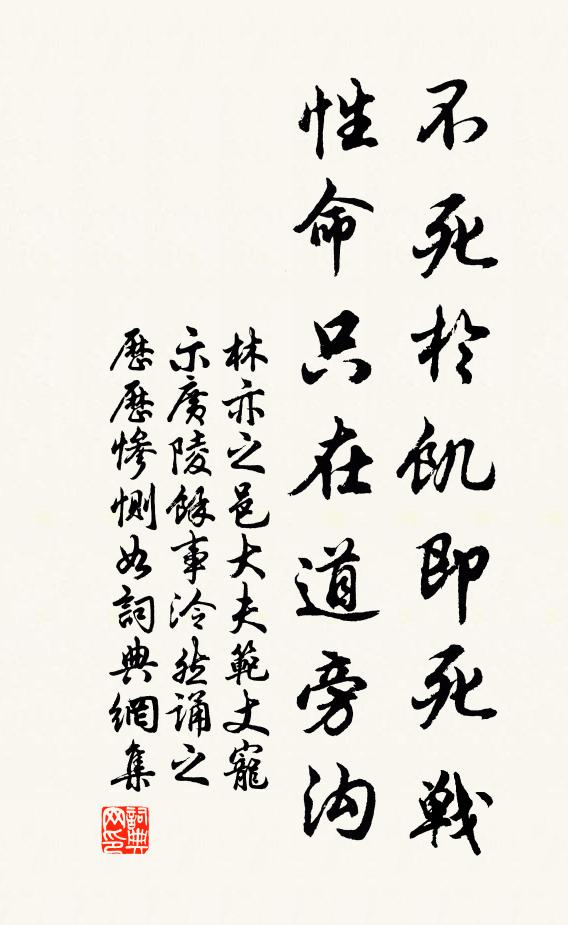 不死於飢即死戰
性命只在道旁沟
林亦之邑大夫範丈寵
示廣陵餘事泠然誦之
歷歷慘惻如詞典網集
詞典网印